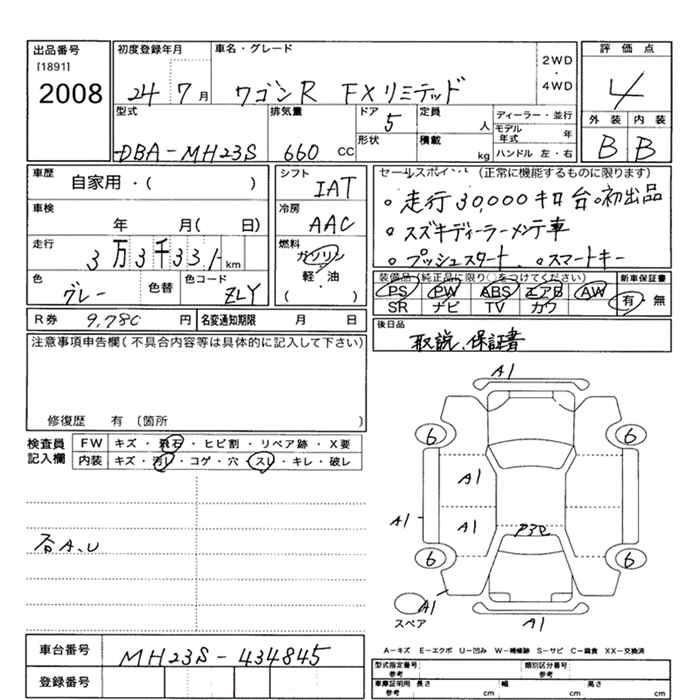 出品番号
[1891]
2008
初度登録年月
24 7 月
車名・グレード
ワゴンR FXリミテッド
2WD
・
4WD
評価点
4
外装 内装
B B
型式
DBA-MH23S
排気量
660 CC
ドア
5
形状
定員
人
積載
kg
ディーラー・並行
モデル年式 年
ハンドル 左・右
車歴
自家用・( )
車検
年 月( 日)
走行
3万3千331 km
色
グレー
色替
色コード
ZLY
シフト
IAT
冷房
AAC
燃料
ガソリン
・
軽・油
( )
セールスポイント (正常に機能するものに限ります)
。走行30,000キロ台。初出品
。スズキディーラーメンテ車
。プッシュスタート 。スマートキー
装備品(純正品に限り○をつけてください)
PS PW ABS エアB AW
SR ナビ TV カワ
新車保証書
有・無
R券 9,780 円
名変通知期限 月 日
後日品
取説、保証書
注意事項申告欄(不具合内容等は具体的に記入して下さい)
修復歴 有 (箇所 )
検査員
記入欄
FW キズ・飛石・ヒビ割・リペア跡・X要
内装 キズ・汚レ・コゲ・穴・スレ・キレ・破レ
各A、U
A1
6 6
A1
A1 A1
6 6
A1
A1
スペア
A-キズ E-エクボ U-凹み W-補修跡 S-サビ C-腐食 XX-交換済
車台番号 MH23S-434845
登録番号
型式指定番号
参考
類別区分番号
参考
車庫証明用 長さ 幅 高さ
参考 cm cm cm